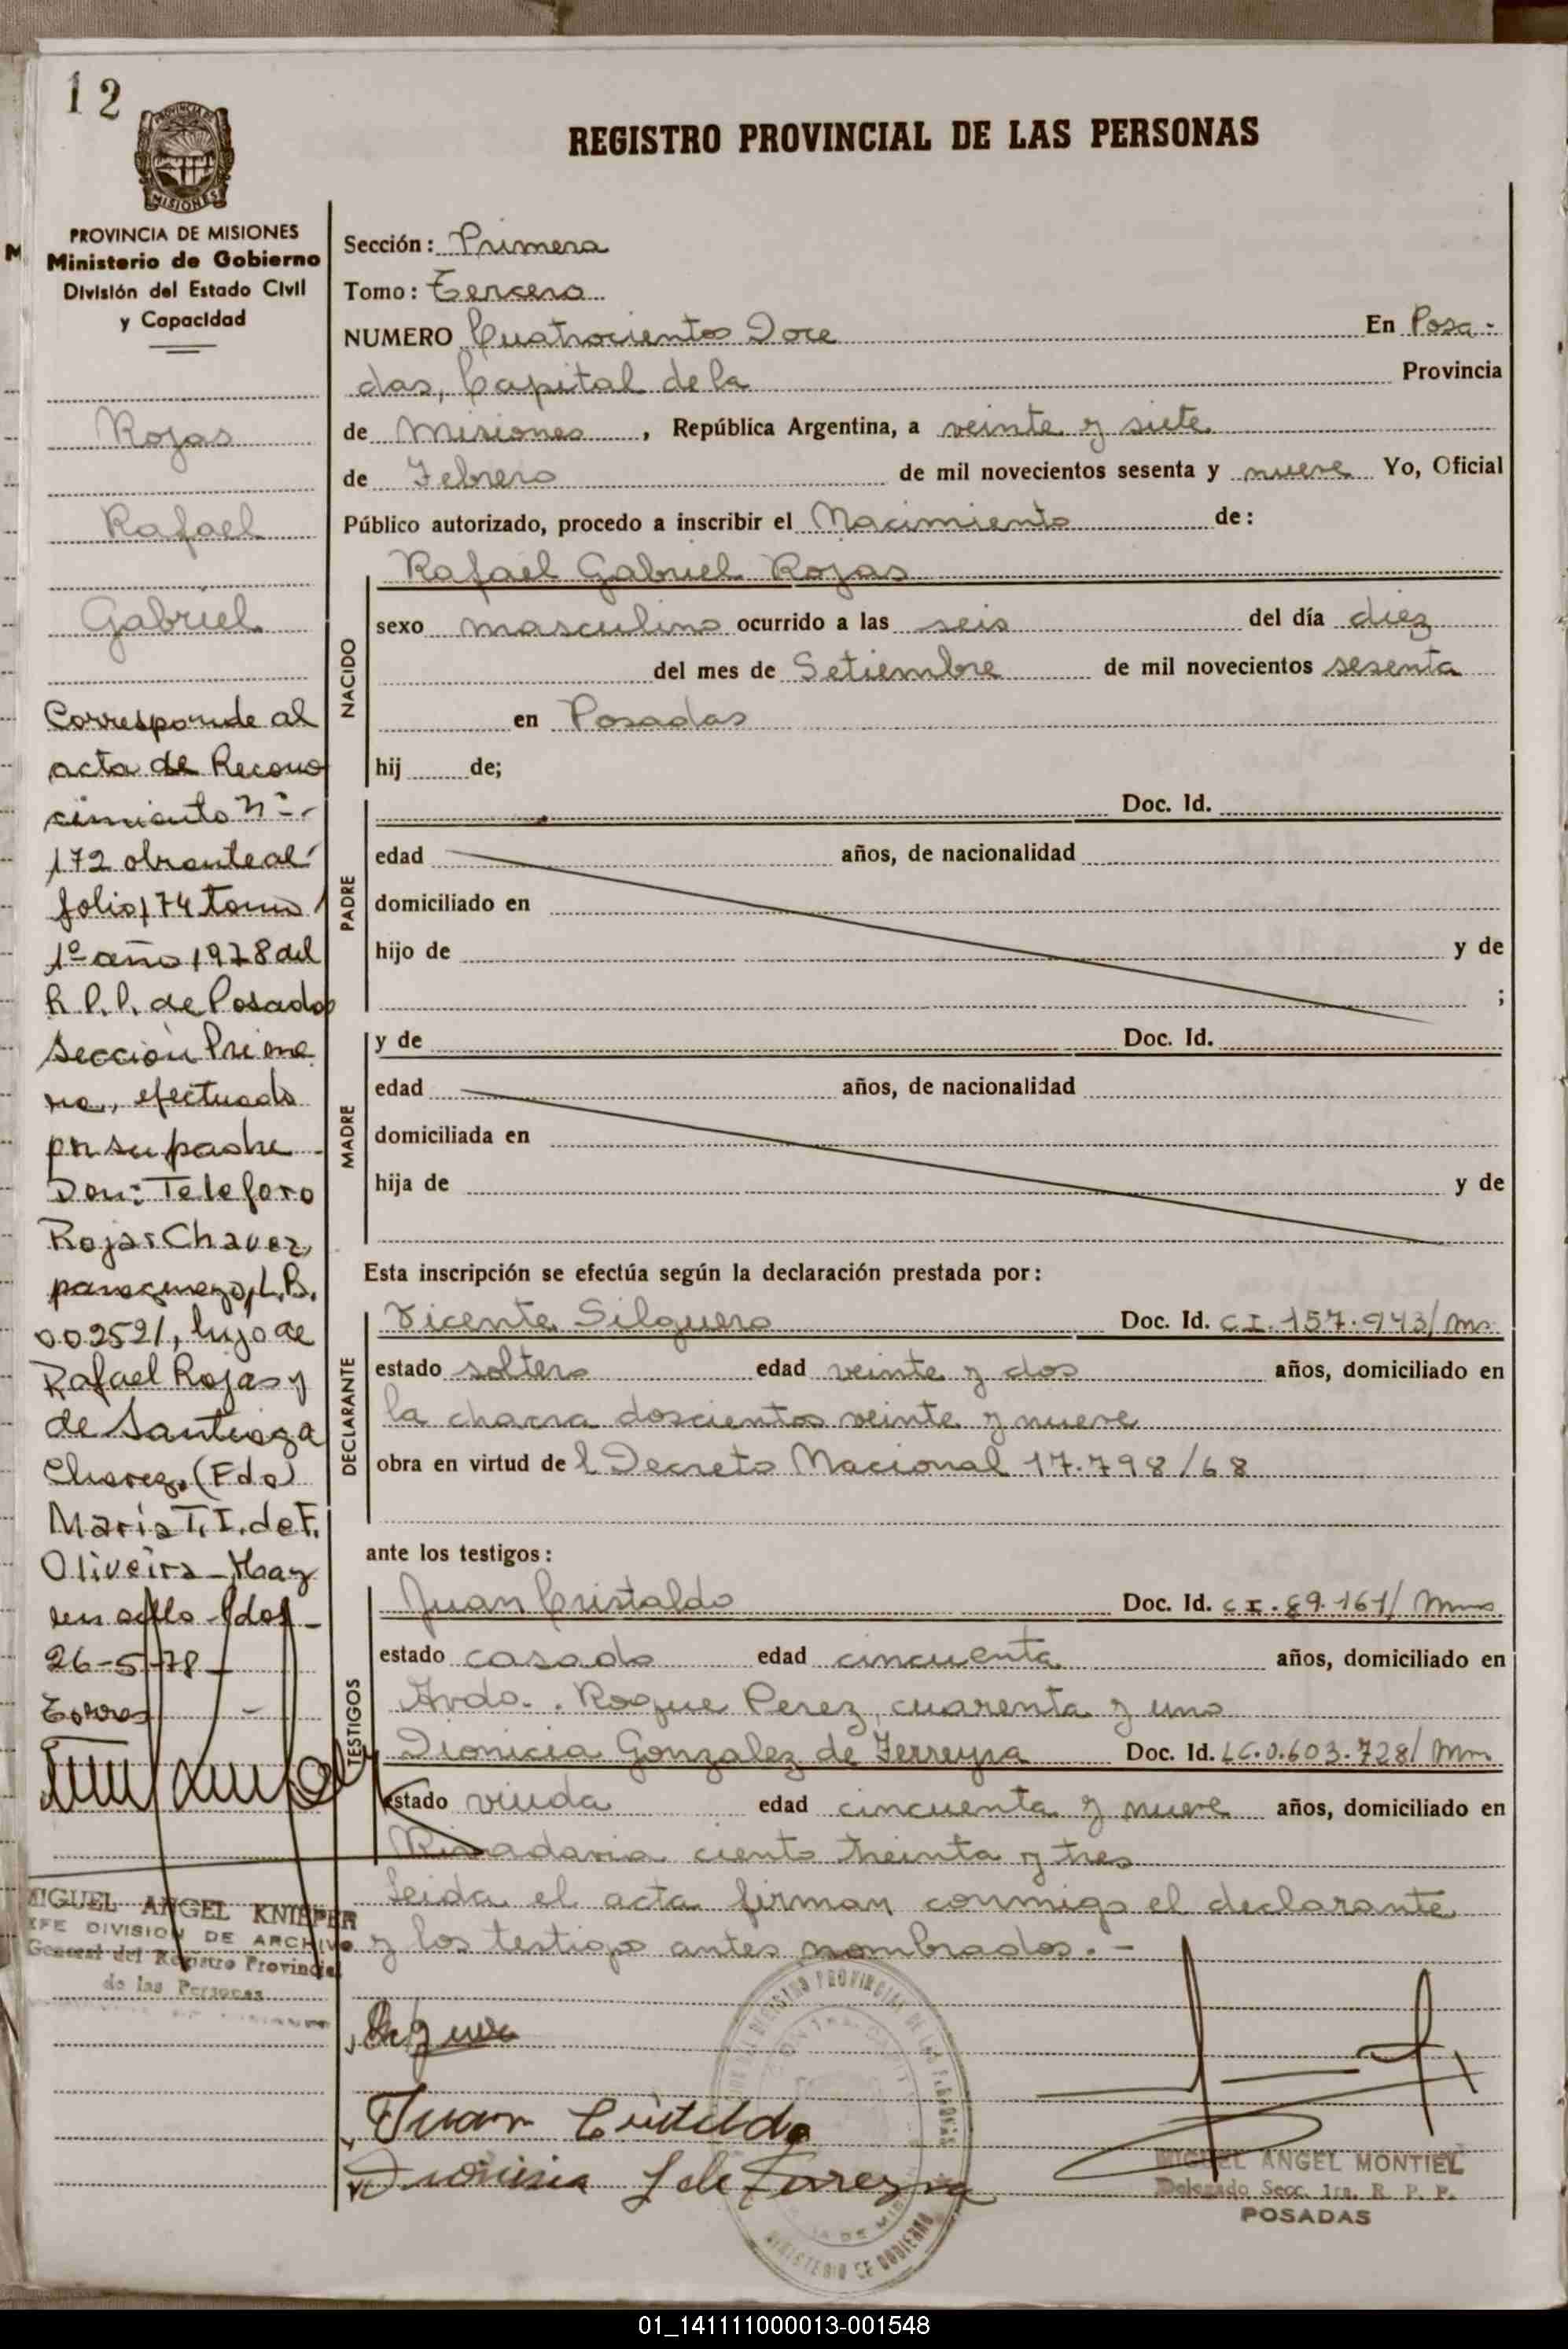 12
PROVINCIA DE MISIONES
Ministerio de Gobierno
División del Estado Civil
y Capacidad
Rojas
Rafael
Gabriel
Corresponde al
acta de Recono
cimiento Nº
172 obrante al
folio 174 tomo
1º año 1978 del
R.P.P. de Posadas
Sección Prime
ra, efectuado
por su padre
Don: Teleforo
Rojas Chavez,
paraguayo, L.B.
002521, hijo de
Rafael Rojas y
de Santiaga
Chavez. (Fdo)
María T. I. de F.
Oliveira - Hay
un sello - Pdas -
26-5-78 -
Torres -
MIGUEL ANGEL KNIEPER
JEFE DIVISION DE ARCHIVO
General del Registro Provincial
de las Personas
REGISTRO PROVINCIAL DE LAS PERSONAS
Sección: Primera
Tomo: Tercero
NUMERO Cuatrocientos Doce En Posa-
das, Capital de la Provincia
de Misiones, República Argentina, a veinte y siete
de Febrero de mil novecientos sesenta y nueve Yo, Oficial
Público autorizado, procedo a inscribir el Nacimiento de:
Rafael Gabriel Rojas
NACIDO
sexo masculino ocurrido a las seis del día diez
del mes de Setiembre de mil novecientos sesenta
en Posadas
hij de;
PADRE
Doc. Id.
edad años, de nacionalidad
domiciliado en
hijo de y de
;
MADRE
y de Doc. Id.
edad años, de nacionalidad
domiciliada en
hija de y de
Esta inscripción se efectúa según la declaración prestada por:
DECLARANTE
Vicente Silguero Doc. Id. C.I. 157.943/Ms
estado soltero edad veinte y dos años, domiciliado en
la chacra doscientos veinte y nueve
obra en virtud de l Decreto Nacional 17.798/68
ante los testigos:
TESTIGOS
Juan Cristaldo Doc. Id. C.I. 89.161/Mns
estado casado edad cincuenta años, domiciliado en
Avda. Roque Perez, cuarenta y uno
Dionicia Gonzalez de Ferreyra Doc. Id. L.C.0.603.728/Mns
estado viuda edad cincuenta y nueve años, domiciliado en
Rivadavia ciento treinta y tres
Leida el acta firman conmigo el declarante
y los testigos antes nombrados. -
Juan Cristaldo
MIGUEL ANGEL MONTIEL
Delegado Secc. 1ra. R. P. P.
POSADAS
01_141111000013-001548